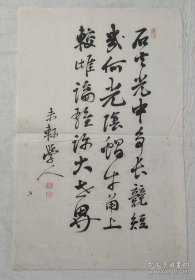 石火光中争长競短
幾何光陰蝸牛角上
較雌論雄許大世界
未軒学人